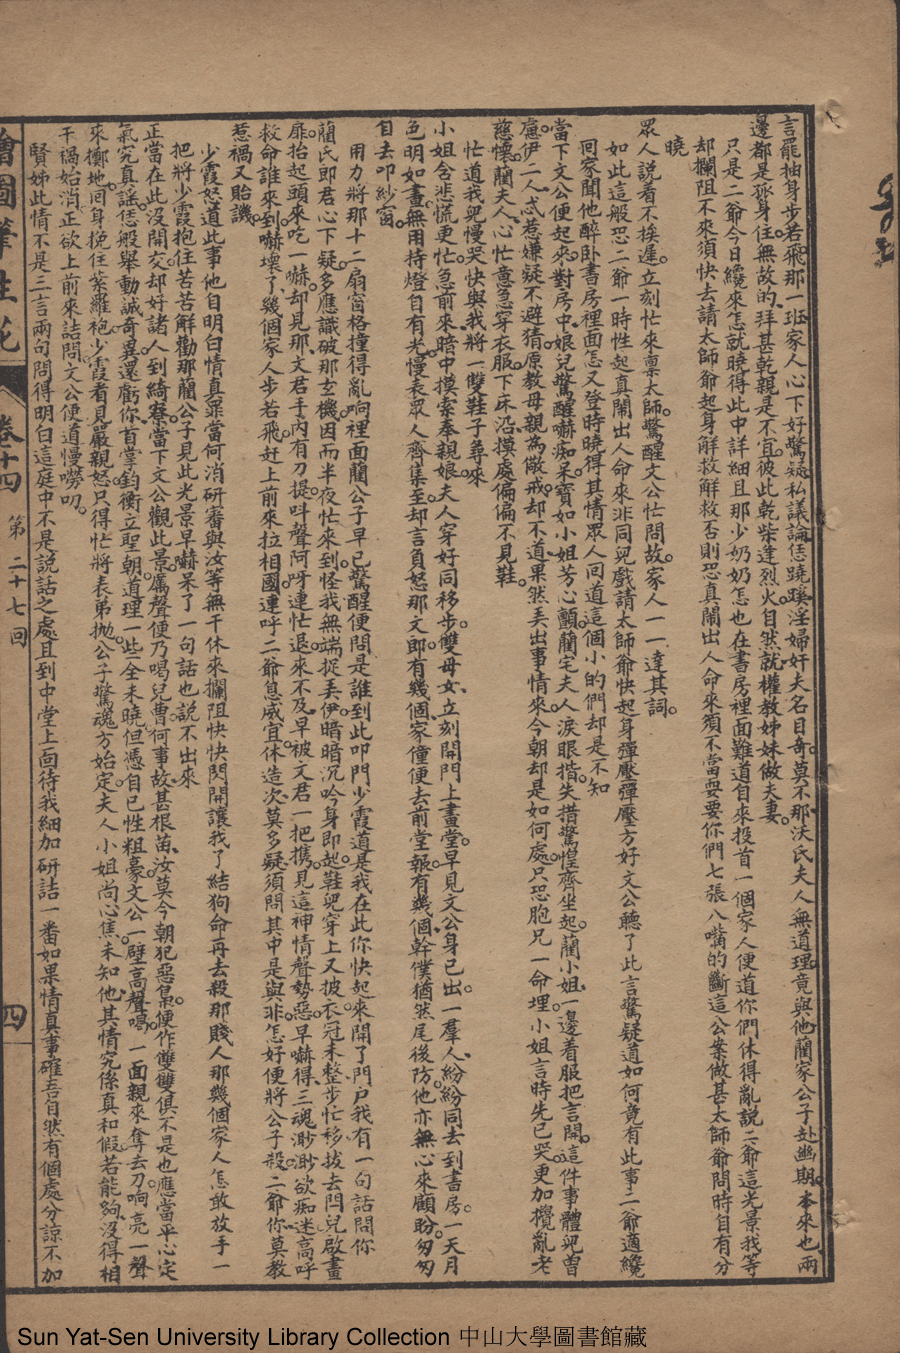 言罷抽身步若飛那一班家人心下好驚疑私議論恁蹺蹊淫婦奸夫名目奇莫不那沃氏夫人無道理竟與他藺家公子赴幽期本來也兩
邊都是孤身住無故的拜甚乾親是不宜彼此乾柴逢烈火自然就權教姊妹做夫妻
只是二爺今日纔來怎就曉得此中詳細且那少奶奶怎也在書房裡面難道自來投首一個家人便道你們休得亂說二爺這光景我等
却攔阻不來須快去請太師爺起身解救解救否則恐真鬧出人命來須不當耍要你們七張八嘴的斷這公案做甚太師爺問時自有分
曉
眾人說着不挨遲立刻忙來稟太師驚醒文公忙問故家人一一達其詞
如此這般恐二爺一時性起真鬧出人命來非同兒戲請太師爺快起身彈壓彈壓方好文公聽了此言驚疑道如何竟有此事二爺適纔
回家聞他醉卧書房裡面怎又登時曉得其情眾人回道這個小的們却是不知
當下文公便起來對房中娘兒驚醒嚇痴呆寶如小姐芳心顫藺宅夫人淚眼揩失措驚惶齊坐起藺小姐一邊着服把言開這件事體兒曾
慮伊二人忒惹嫌疑不避猜原教母親為儆戒却不道果然丟出事情來今朝却是如何處只恐胞兄一命埋小姐言時先已哭更加攪亂老
慈懷藺夫人心忙意急穿衣服下床沿摸處偏偏不見鞋
忙道我兒慢哭快與我將一雙鞋子尋來
小姐含悲慌更忙急前來暗中摸索奉親娘夫人穿好同移步雙母女立刻開門上畫堂早見文公身已出一羣人紛紛同去到書房一天月
色明如晝無用持燈自有光慢表眾人齊集至却言負怒那文郎有幾個家僮便去前堂報有幾個幹僕猶然尾後防他亦無心來顧盼匆匆
自去叩紗窗
用力將那十二扇窗格撞得亂响裡面藺公子早已驚醒便問是誰到此叩門少霞道是我在此你快起來開了門戶我有一句話問你
藺氏郎君心下疑多應識破那玄機因而半夜忙來到怪我無端捉丟伊暗暗沉吟身即起鞋兒穿上又披衣冠未整步忙移拔去閂兒啟畫
扉抬起頭來吃一嚇却見那文君手內有刀提呌聲阿呀連忙退來不及早被文君一把携見這神情聲勢惡早嚇得三魂渺渺欲痴迷高呼
救命誰來到嚇壞了幾個家人步若飛赶上前來拉相國連呼二爺息威宜休造次莫多疑須問其中是與非怎好便將公子殺二爺你莫教
惹禍又貽譏
少霞怒道此事他自明白情真罪當何消研審與汝等無干休來攔阻快快閃開讓我了結狗命再去殺那賤人那幾個家人怎敢放手一
把將少霞抱住苦苦解勸那藺公子見此光景早嚇呆了一句話也說不出來
正當在此沒開交却好諸人到綺寮當下文公觀此景厲聲便乃喝兒曹何事故甚根苗汝莫今朝犯惡梟便作雙雙俱不是也應當平心定
氣究真謡恁般舉動誠奇異還虧你首掌鈞衡立聖朝道理一些全未曉但憑自己性粗豪文公一壁高聲喝一面親來奪去刀响亮一聲
來擲地回身挽住紫羅袍少霞看見嚴親怒只得忙將表弟抛公子驚魂方始定夫人小姐尚心焦未知他其情究係真和假若能夠沒得相
干禍始消正欲上前來詰問文公便道慢嘮叨
賢姊此情不是三言兩句問得明白這庭中不是說話之處且到中堂上面待我細加研詰一番如果情真事確吾自然有個處分諒不加
繪圖筆生花 卷十四 第二十七回 四
Sun Yat-Sen University Library Collection 中山大學圖書館藏